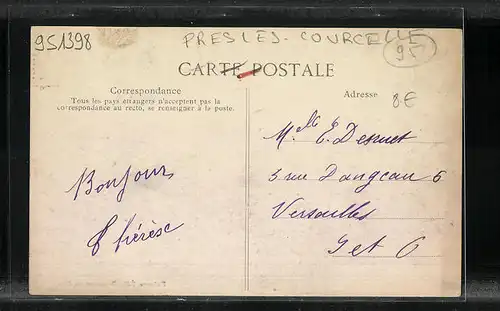 951398
PRESLES-COURCELLE
95
CARTE POSTALE
Correspondance
Tous les pays étrangers n'acceptent pas la
correspondance au recto, se renseigner à la poste.
Adresse
8€
Bonjour
Thérèse
Mlle E. Desruet
5 rue Dangeau 6
Versailles
Set O